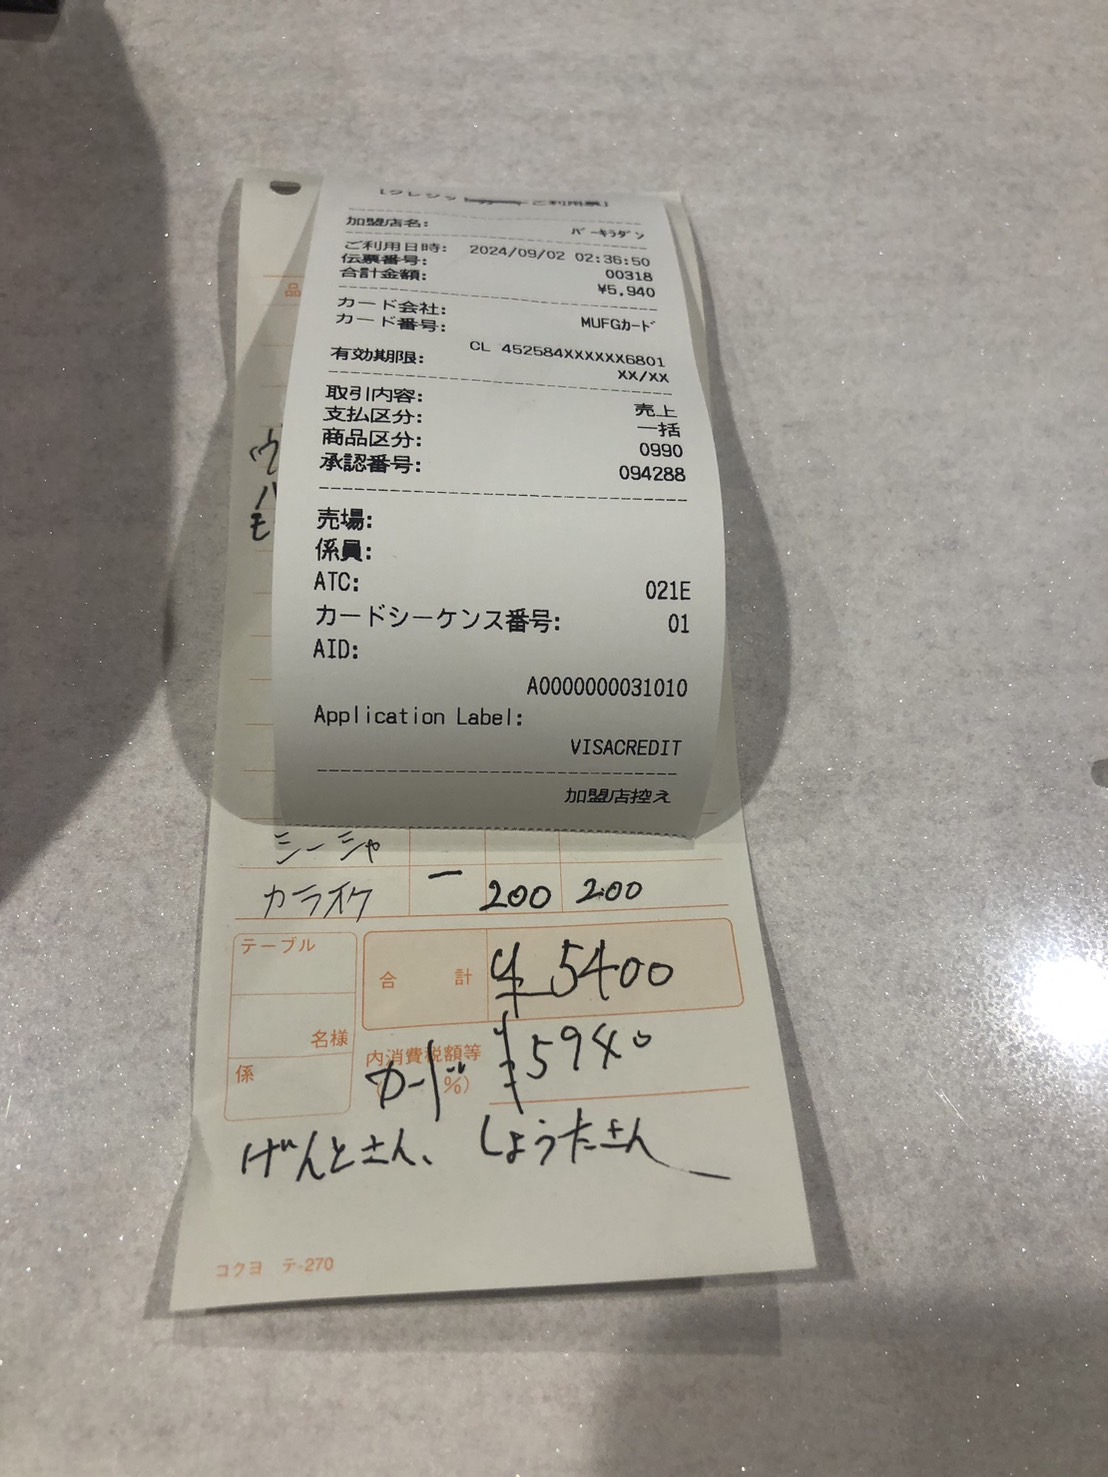 【クレジットカード ご利用票】
加盟店名: バーキラダン
ご利用日時: 2024/09/02 02:36:50
伝票番号: 00318
合計金額: ¥5,940
カード会社: MUFGカード
カード番号:
CL 452584XXXXXX6801
有効期限: XX/XX
取引内容: 売上
支払区分: 一括
商品区分: 0990
承認番号: 094288
売場:
係員:
ATC: 021E
カードシーケンス番号: 01
AID:
A0000000031010
Application Label:
VISACREDIT
加盟店控え
品
ウ
ハ
モ
シーシャ
カライク 一 200 200
テーブル
名様
係
合計 ¥5400
内消費税額等
%)
カード ¥5940
げんとさん、しょうたさん
コクヨ テ-270